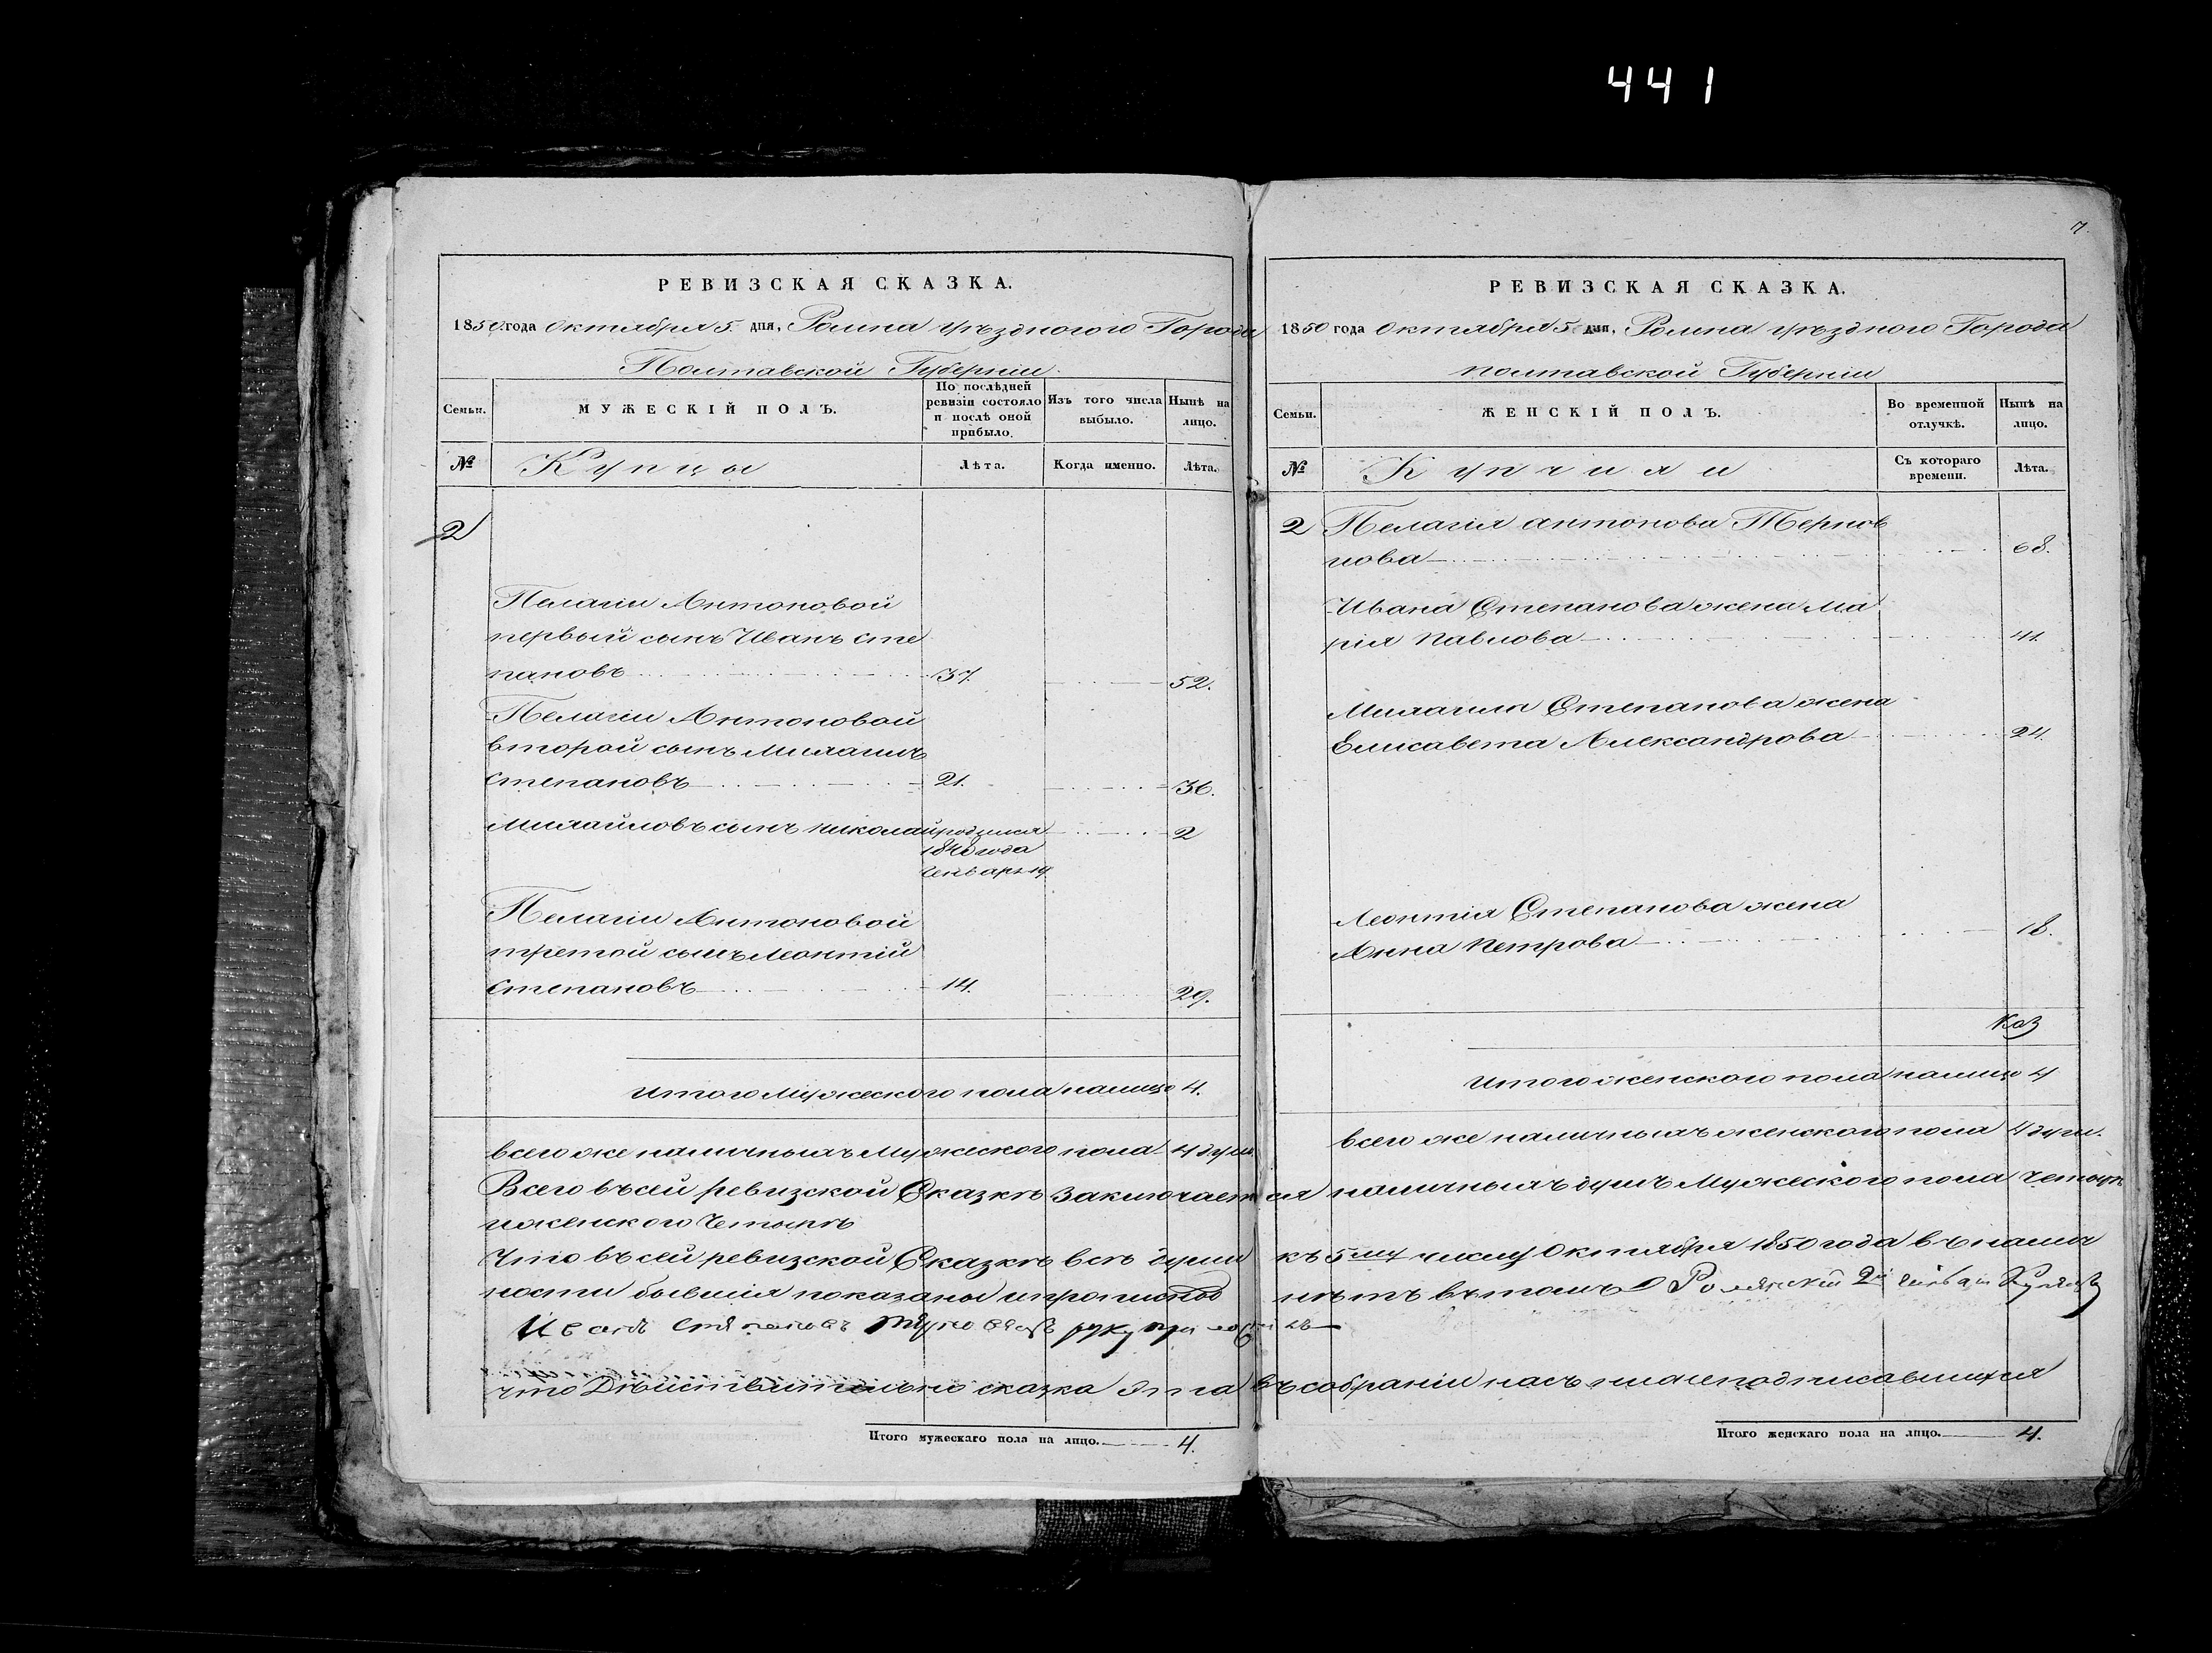 441
РЕВИЗСКАЯ СКАЗКА.
1850 года Октября 5. дня, Ромна уѣздного Города
Полтавской Губерніи
Семьи.
МУЖЕСКІЙ ПОЛЪ.
По послѣдней ревизіи состояло и послѣ оной прибыло.
Изъ того числа выбыло.
Нынѣ на лицо.
№
Купцы
Лѣта.
Когда именно.
Лѣта.
2
Пелагіи Антоновой
первый сынъ Иванъ Сте
пановъ 37. 52.
Пелагіи Антоновой
второй сынъ Михаилъ
Степановъ 21. 36.
Михайловъ сынъ Николай родился 2
1848 года
Генваря 19
Пелагіи Антоновой
третой сынъ Леонтій
Степановъ 14. 29.
Итого Мужеского пола налицо 4.
всего же наличныхъ Мужеского пола 4 душ
Итого мужескаго пола на лицо. 4.
7.
РЕВИЗСКАЯ СКАЗКА.
1850 года Октября 5 дня, Ромна уѣздного Города
полтавской Губерніи
Семьи.
ЖЕНСКІЙ ПОЛЪ.
Во временной отлучкѣ.
Нынѣ на лицо.
№
Купчихи
Съ котораго времени.
Лѣта.
2 Пелагія Антонова
нова 68.
Ивана Степанова жена Ма
рія Павлова 41.
Михаила Степанова жена
Елисавета Александрова 24
Леонтія Степанова жена
Анна Петрова 18.
Итого женского пола налицо 4
всего же наличныхъ женского пола 4 душ.
Всего въ сей ревизской Сказкѣ заключается наличныхъ душъ Мужеского пола Четыре
и женского Четыре
Что въ сей ревизской Сказкѣ всѣ души къ 5му числу Октября 1850 года въ налич
ности бывшія показаны и прописн нѣтъ въ томъ
Иванъ Степановъ руку
что Дѣйствительно сказка эта въ собраніи насъ нижеподписавшихся
Итого женскаго пола на лицо. 4.